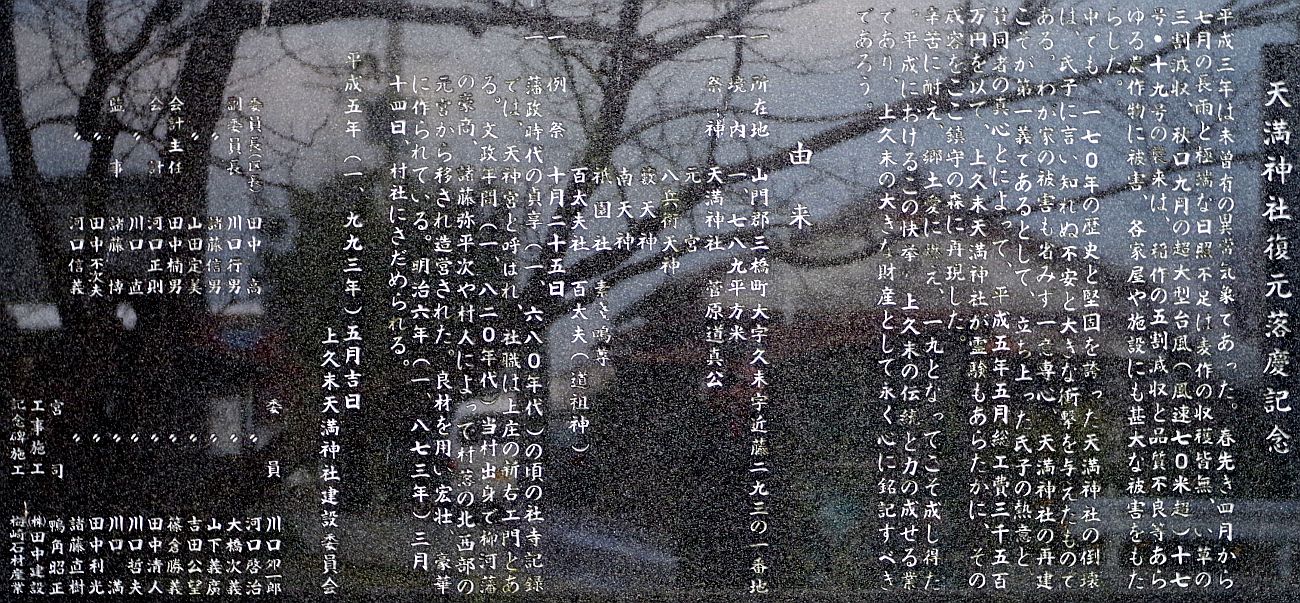 天満神社復元落慶記念
平成三年は未曽有の異常気象であった。春先き四月から
七月の長雨と極端な日照不足は麦作の収穫皆無、い草の
三割減収、秋口九月の超大型台風(風速七0米超)十七
号・十九号の襲来は、稲作の五割減収と品質不良等あら
ゆる農作物に被害、各家屋や施設にも甚大な被害をもた
らした。
中でも、一七0年の歴史と堅固を誇った天満神社の倒壊
は、氏子に言い知れぬ不安と大きな衝撃を与えたもので
ある、わが家の被害も省みず一意専心、天満神社の再建
こそが第一義てあるとして、立ち上った氏子の熱意と
賛同者の真心とによって、平成五年五月総工費三千五百
万円を以て、上久末天満神社が霊験もあらたかに、その
威容をここ鎮守の森に再現した。
辛苦に耐え、郷土愛に燃え、一丸となってこそ成し得た
。平成におけるこの快挙、上久末の伝統と力の成せる業
であり、上久末の大きな財産として永く心に銘記すべき
であろう。
由来
一 所在地 山門郡三橋町大字久末字近藤二九三の一番地
境内 一、七八九平方米
一 祭神 天満神社 菅原道真公
元宮
八兵衛天神
薮天神
南天神
祇園社 素き鳴尊
百太夫社 百太夫(道祖神)
一 例祭 十月二十五日
一 藩政時代の貞享(一、六八0年代)の頃の社寺記録
では、天神宮と呼ばれ、社職は上庄の新右エ門とあ
る。文政年間(一、八二0年代)当村出身で柳河藩
の豪商、諸藤弥平次や村人によって村落の北西部の
元宮から移され造営された。良材を用い宏壮、豪華
に作られている。明治六年(一、八七三年)三月
十四日、村社にさだめられる。
平成五年(一、九九三年)五月吉日
上久末天満神社建設委員会
委員長(区長) 田中高
副委員長 川口行男
〃 諸藤信男
〃 山田定美
会計主任 田中楠男
会計 河口正則
〃 川口直
監事 諸藤博
〃 田中不二夫
〃 河口信義
委員 川口卯一郎
〃 河口啓治
〃 大橋次義
〃 山下義廣
〃 吉田公望
〃 篠倉勝義
〃 田中清人
〃 川口哲夫
〃 川口満
〃 田中利光
〃 諸藤直樹
宮司 鴨角昭正
工事施工 ㈱田中建設
記念碑施工 梅崎石材産業